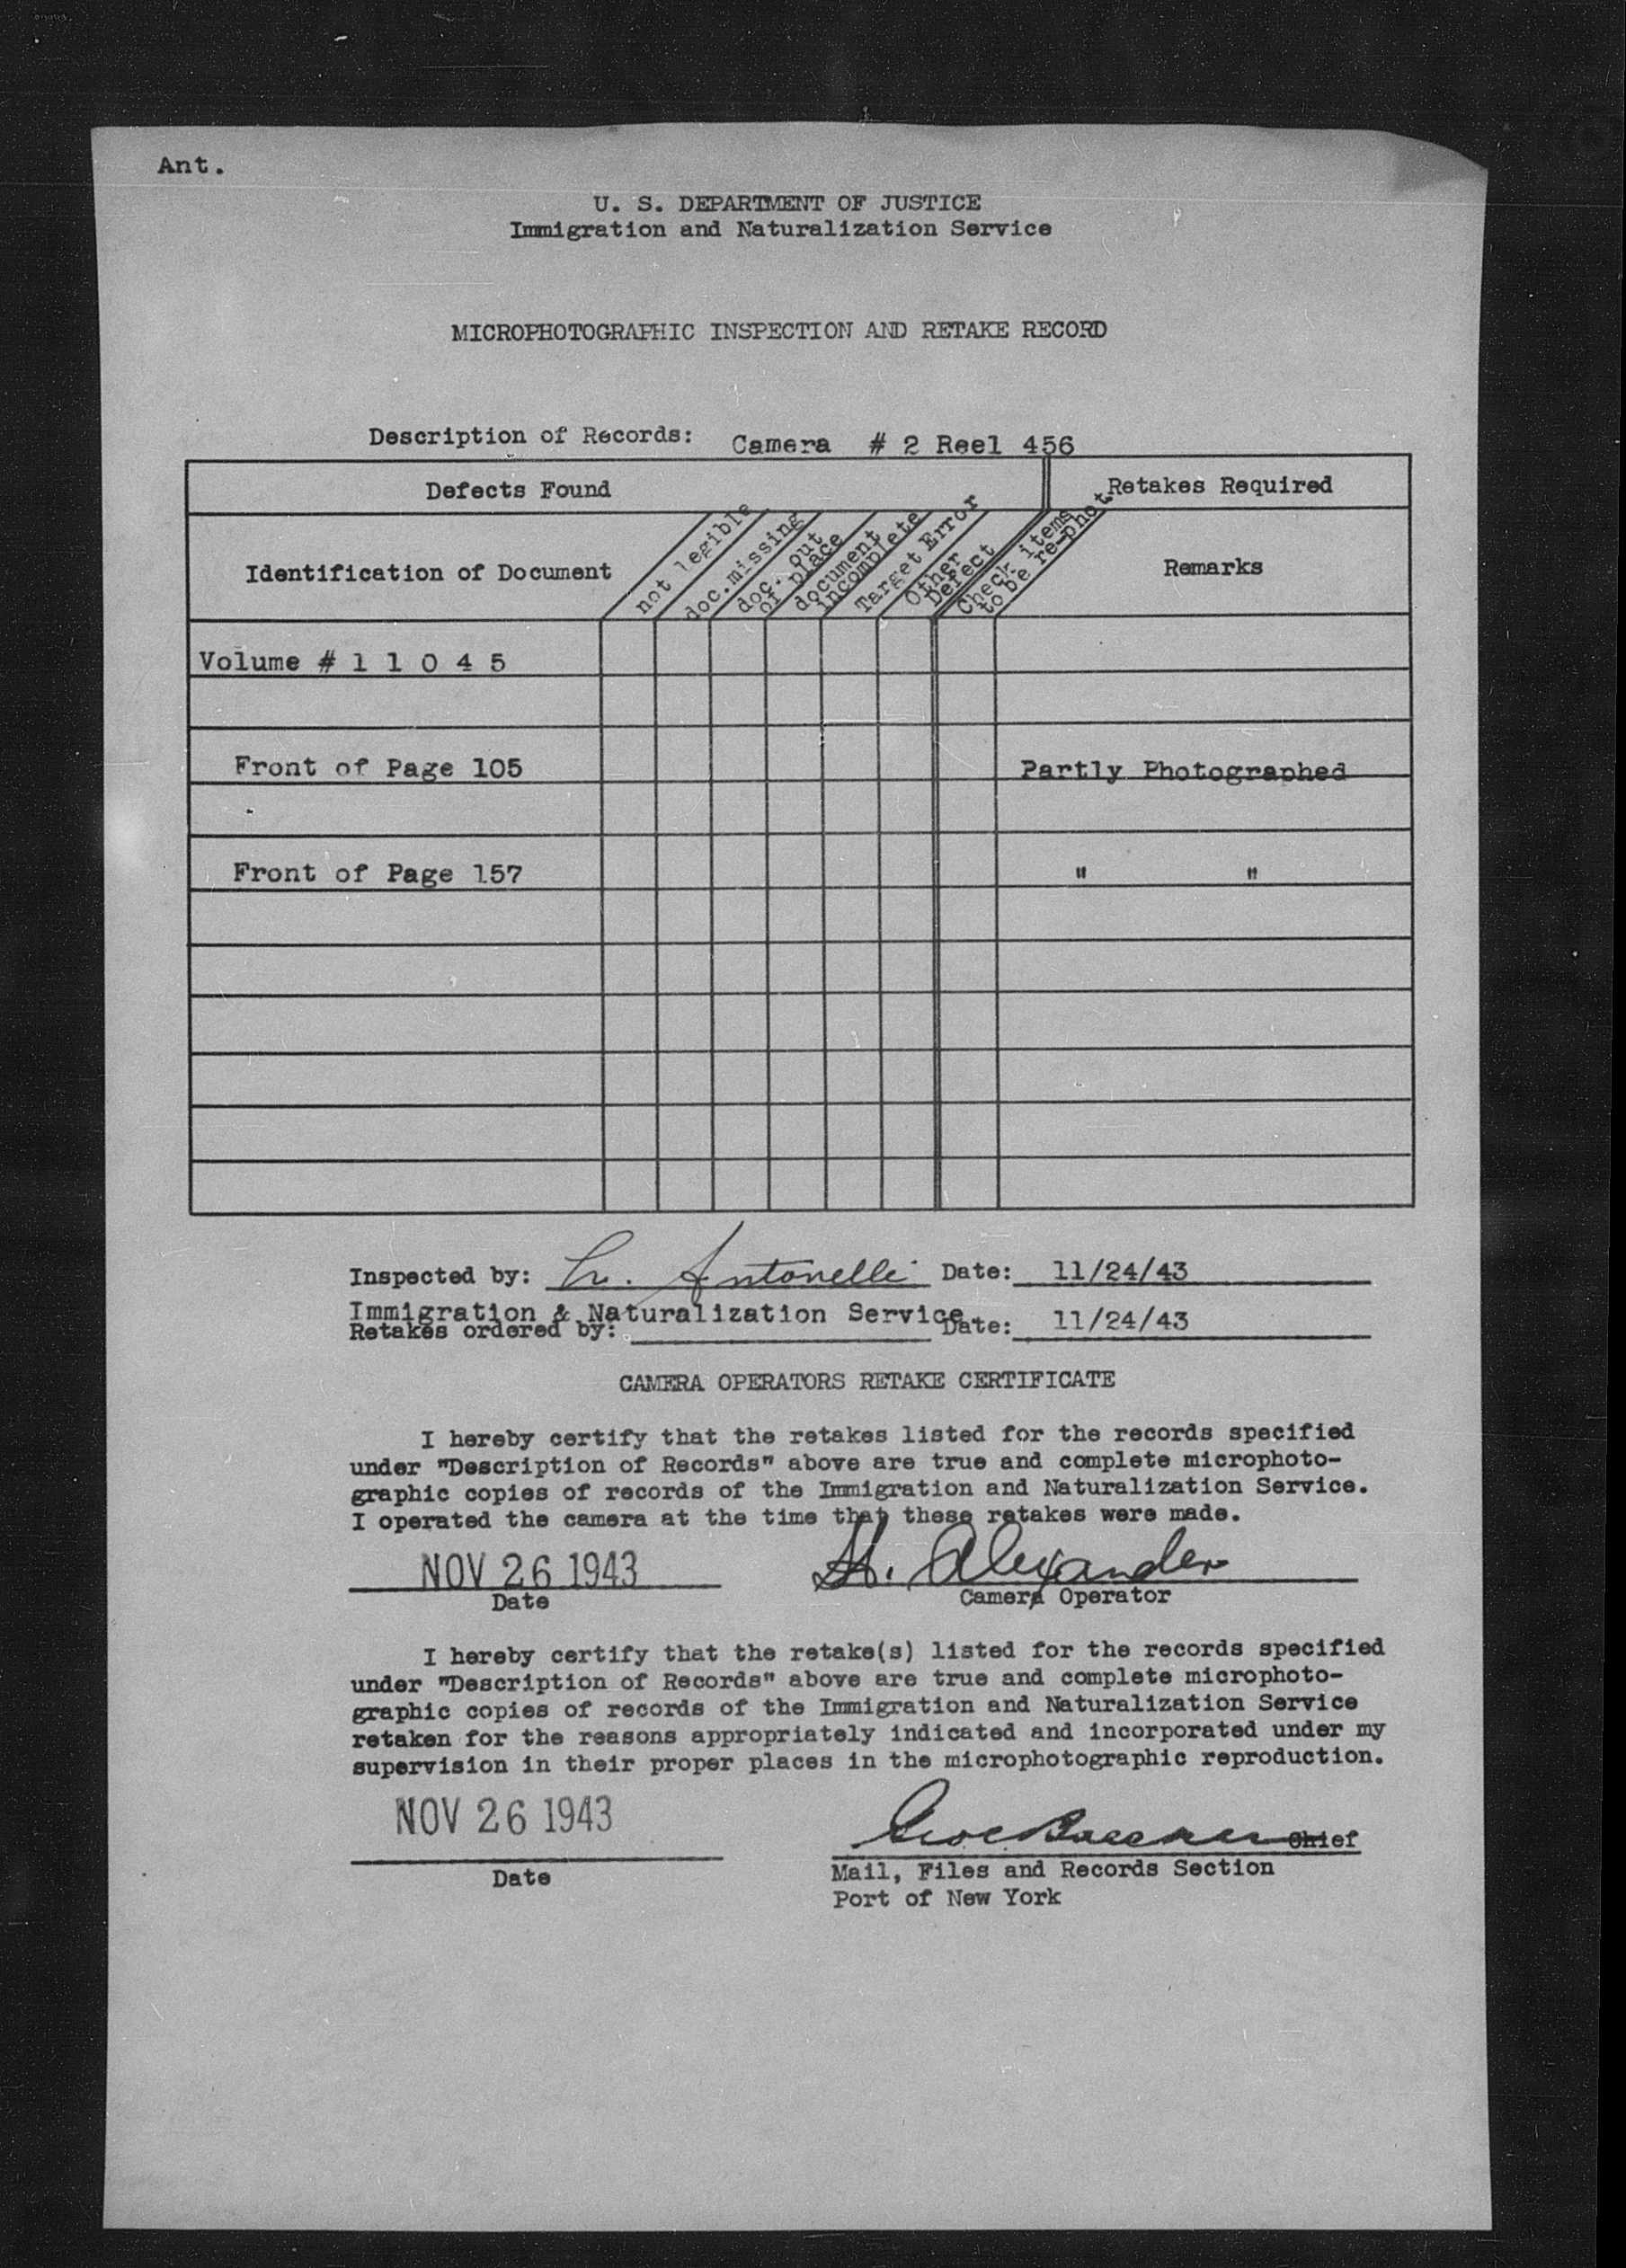 Ant.
U. S. DEPARTMENT OF JUSTICE
Immigration and Naturalization Service
MICROPHOTOGRAPHIC INSPECTION AND RETAKE RECORD
Description of Records: Camera # 2 Reel 456
Defects Found
Retakes Required
Identification of Document
not legible
doc. missing
doc. out
of place
document
incomplete
Target Error
Other
Defect
Check items
to be re-phot.
Remarks
Volume # 1 1 0 4 5
Front of Page 105 Partly Photographed
Front of Page 157 " "
Inspected by: Antonelli Date: 11/24/43
Immigration & Naturalization Service
Retakes ordered by: Date: 11/24/43
CAMERA OPERATORS RETAKE CERTIFICATE
I hereby certify that the retakes listed for the records specified
under "Description of Records" above are true and complete microphoto-
graphic copies of records of the Immigration and Naturalization Service.
I operated the camera at the time that these retakes were made.
NOV 26 1943 H. Alexander
Date Camera Operator
I hereby certify that the retake(s) listed for the records specified
under "Description of Records" above are true and complete microphoto-
graphic copies of records of the Immigration and Naturalization Service
retaken for the reasons appropriately indicated and incorporated under my
supervision in their proper places in the microphotographic reproduction.
NOV 26 1943
Chief
Date
Mail, Files and Records Section
Port of New York